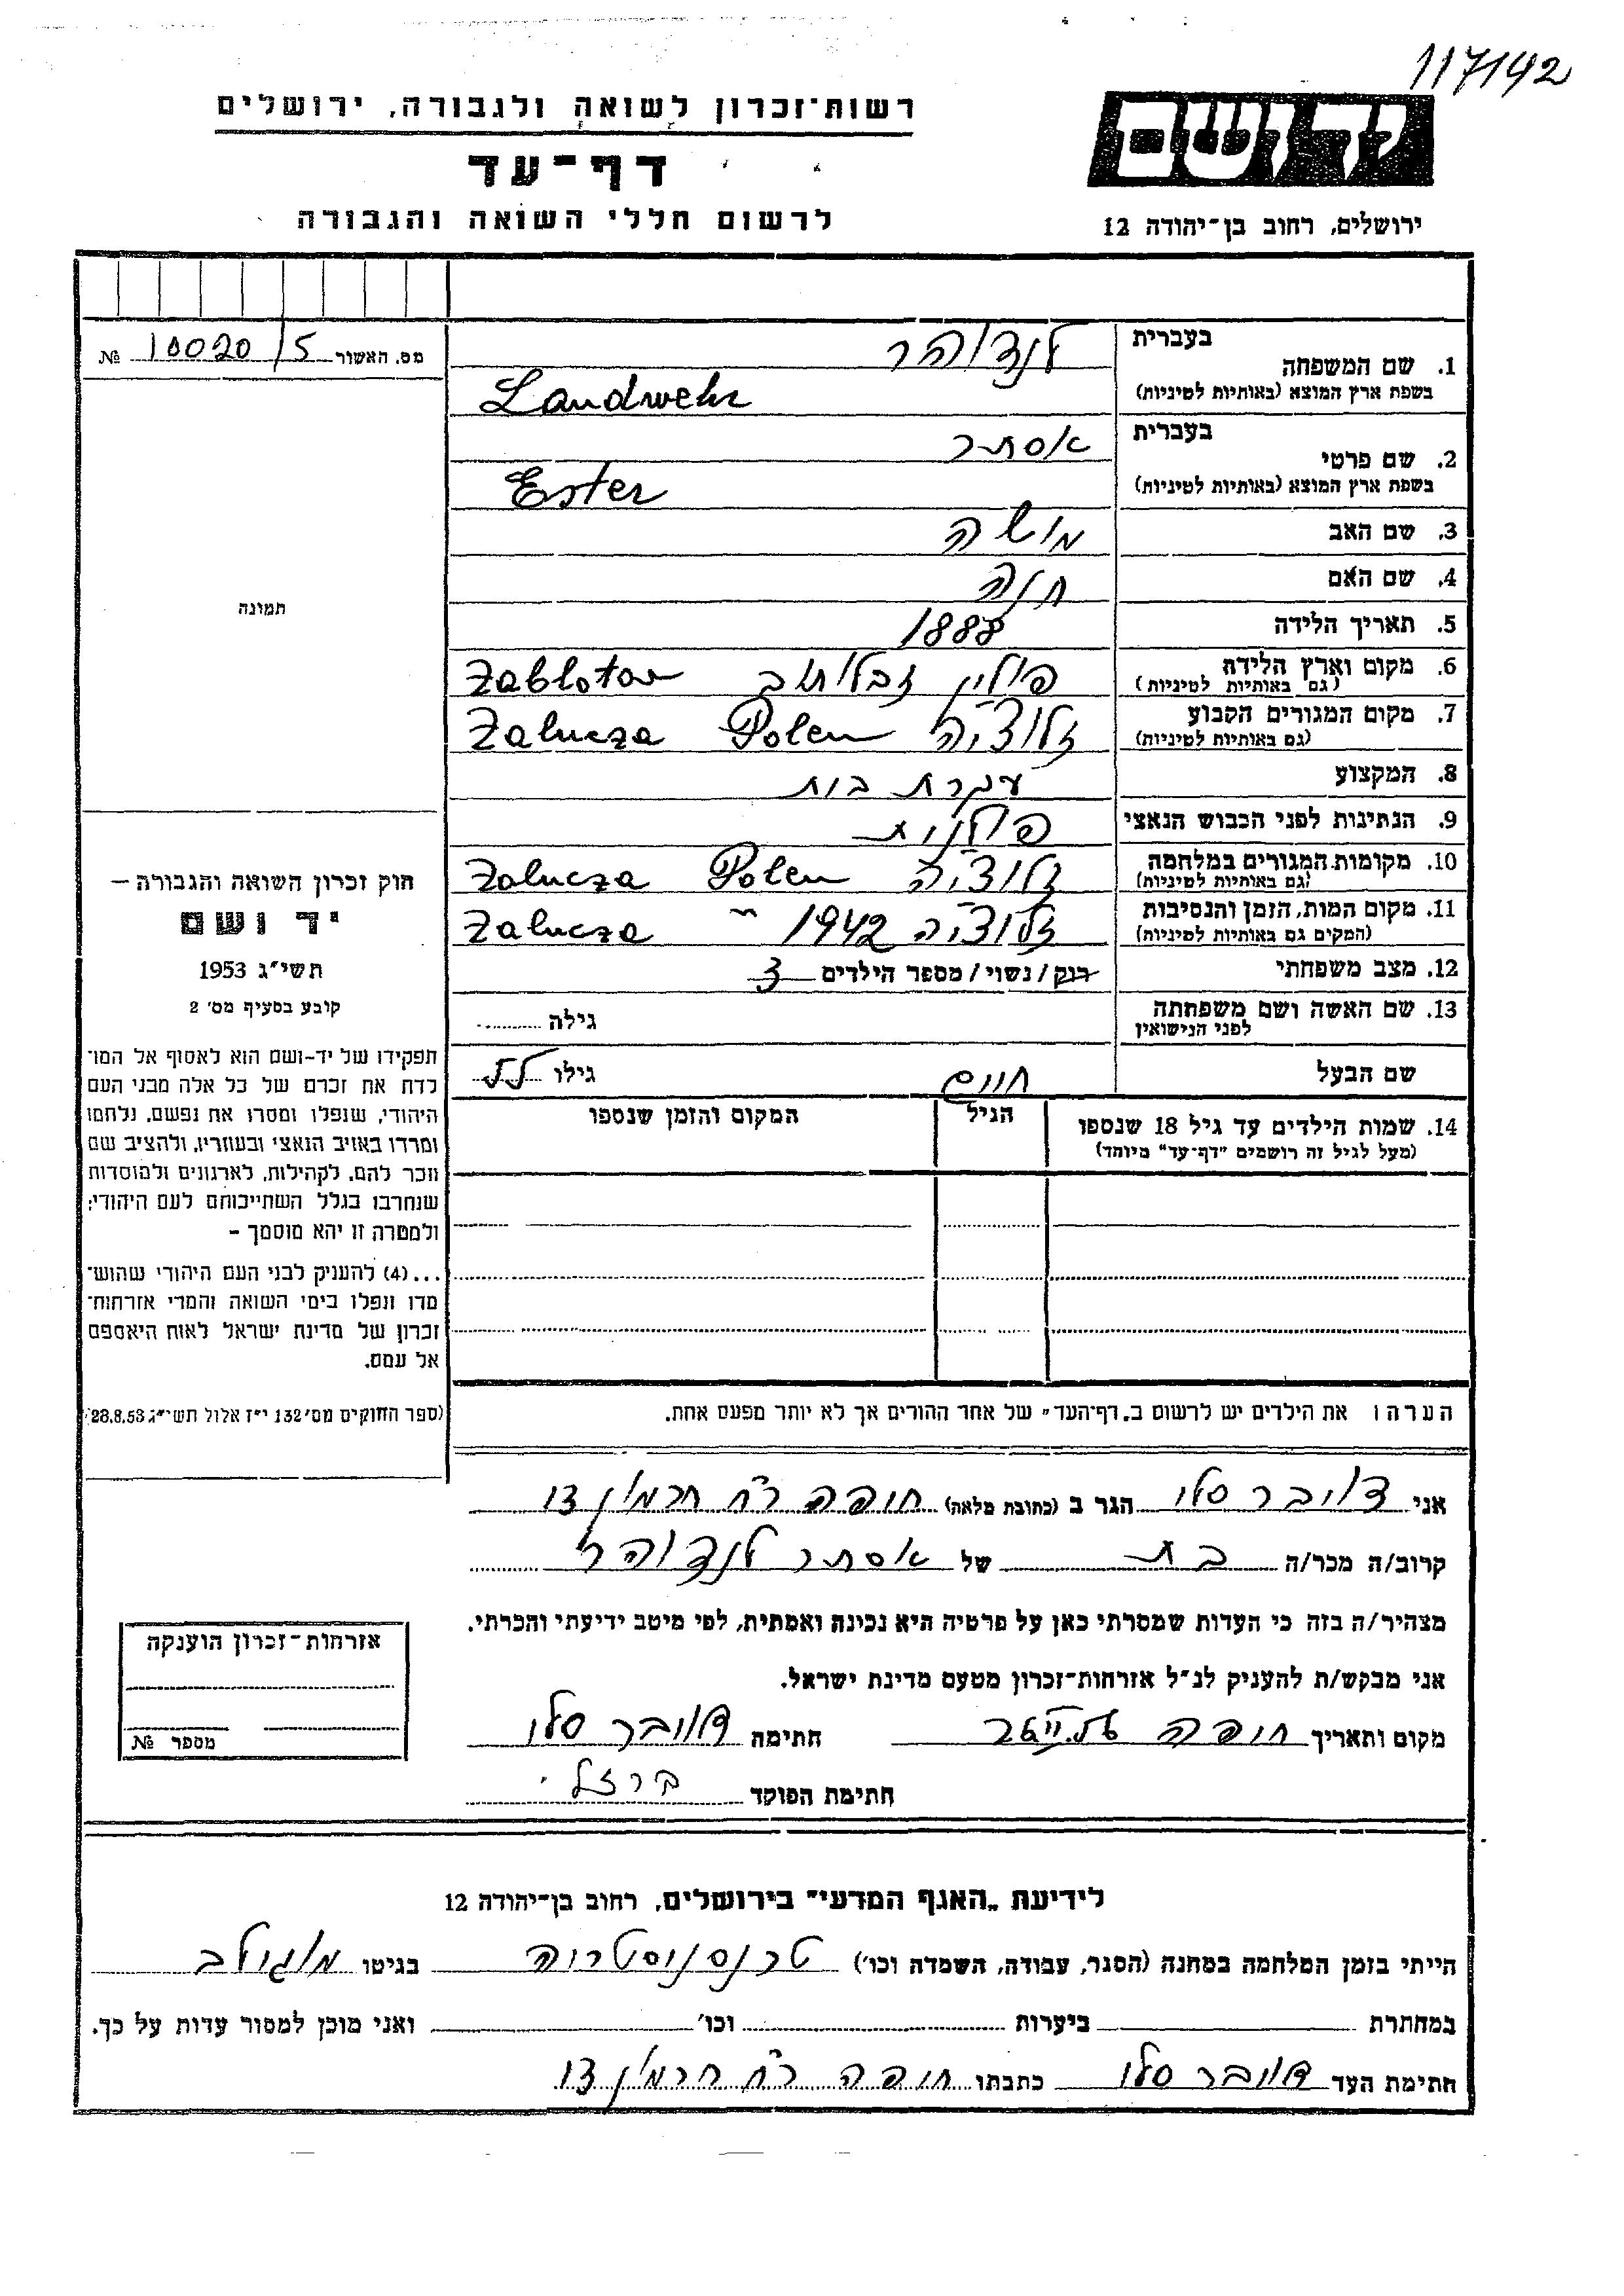 117142
רשות־זכרון לשואה ולגבורה, ירושלים
יד ושם
דף־עד
לרשום חללי השואה והגבורה
ירושלים, רחוב בן־יהודה 12
מס. האשור 10020/5 №
בעברית לנדוהר
1. שם המשפחה
בשפת ארץ המוצא (באותיות לטיניות) Landwehr
בעברית אסתר
2. שם פרטי
בשפת ארץ המוצא (באותיות לטיניות) Ester
3. שם האב משה
4. שם האם חנה
5. תאריך הלידה 1888
6. מקום וארץ הלידה פולין זבלוטוב Zablotow
(גם באותיות לטיניות)
7. מקום המגורים הקבוע זלוציה Polen Zalucza
(גם באותיות לטיניות)
8. המקצוע עקרת בית
9. הנתינות לפני הכבוש הנאצי פולנית
10. מקומות המגורים במלחמה זלוציה Polen Zalucza
(גם באותיות לטיניות)
11. מקום המות, הזמן והנסיבות זלוציה 1942 Zalucza
(המקום גם באותיות לטיניות)
12. מצב משפחתי רוק/נשוי/מספר הילדים 3
13. שם האשה ושם משפחתה
לפני הנישואין
גילה
שם הבעל חיים גילו
14. שמות הילדים עד גיל 18 שנספו הגיל המקום והזמן שנספו
(מעל לגיל זה רושמים "דף־עד" מיוחד)
הערה: את הילדים יש לרשום ב„דף־העד" של אחד ההורים אך לא יותר מפעם אחת.
תמונה
חוק זכרון השואה והגבורה –
יד ושם
תשי"ג 1953
קובע בסעיף מס' 2
תפקידו של יד-ושם הוא לאסוף אל המו־
לדת את זכרם של כל אלה מבני העם
היהודי, שנפלו ומסרו את נפשם, נלחמו
ומרדו באויב הנאצי ובעוזריו, ולהציב שם
וזכר להם, לקהילות, לארגונים ולמוסדות
שנחרבו בגלל השתייכותם לעם היהודי;
ולמטרה זו יהא מוסמך –
...(4) להעניק לבני העם היהודי שהוש־
מדו ונפלו בימי השואה והמרי אזרחות־
זכרון של מדינת ישראל לאות היאספם
אל עמם.
(ספר החוקים מס' 132 י"ז אלול תשי"ג 28.8.53)
אני דויבר סלי הגר ב (כתובת מלאה) חיפה רח חרמון 13
קרוב/ה מכר/ה בת של אסתר לנדוהר
מצהיר/ה בזה כי העדות שמסרתי כאן על פרטיה היא נכונה ואמתית, לפי מיטב ידיעתי והכרתי.
אני מבקש/ת להעניק לנ"ל אזרחות־זכרון מטעם מדינת ישראל.
מקום ותאריך חיפה חתימה דויבר סלי
חתימת הפוקד ברזלי
אזרחות־זכרון הוענקה
מספר №
לידיעת „האגף המדעי" בירושלים, רחוב בן־יהודה 12
הייתי בזמן המלחמה במחנה (הסגר, עבודה, השמדה וכו') טרנסניסטריה בגיטו מוגילב
במחתרת ביערות וכו' ואני מוכן למסור עדות על כך.
חתימת העד דויבר סלי כתבתו חיפה רח חרמון 13